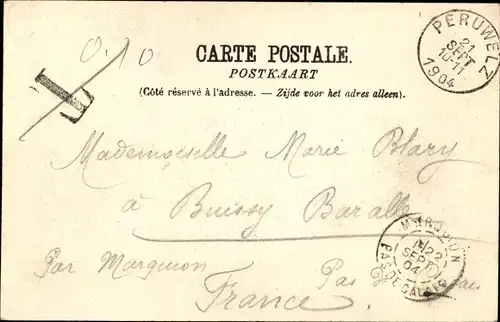 0.10
T
CARTE POSTALE.
POSTKAART
(Côté réservé à l'adresse. — Zijde voor het adres alleen).
PERUWELZ
21
SEPT
10-11
1904
Mademoiselle Marie Blary
à Buissy Baralle
Par Marquion Pas
France.
MARQUION
22
SEPT
04
PAS DE CALAIS